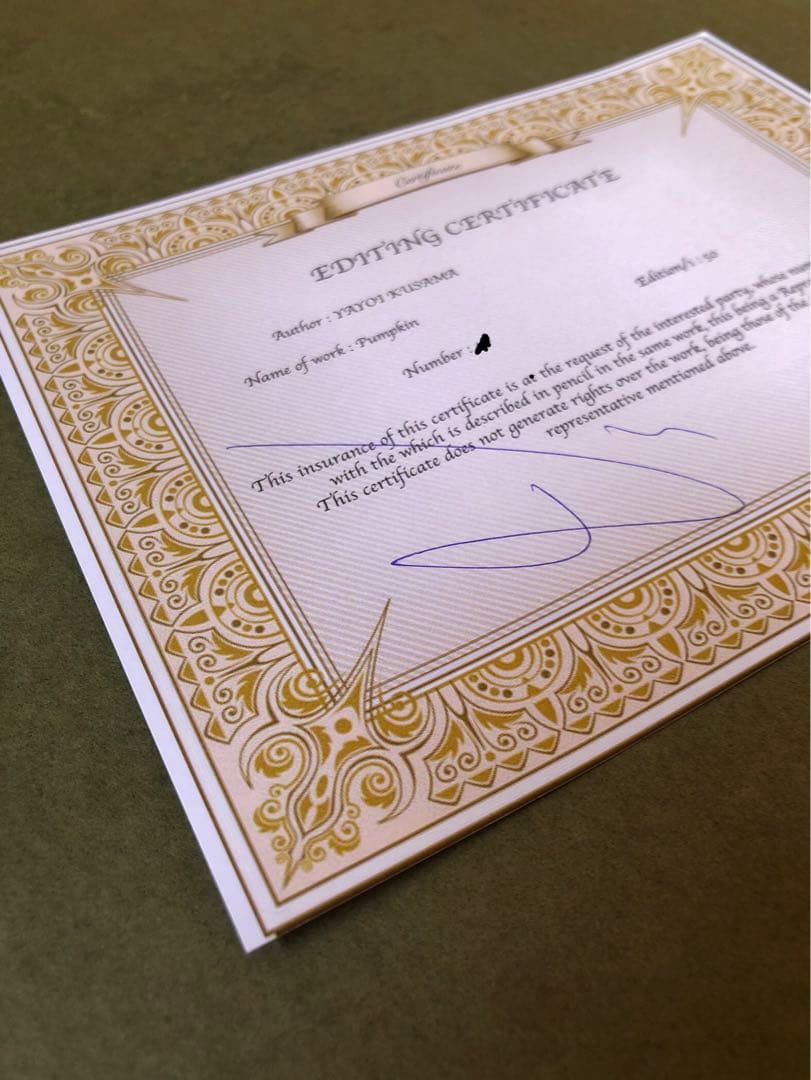 Certificate
EDITING CERTIFICATE
Author : YAYOI KUSAMA
Edition/s : 50
Name of work : Pumpkin
Number :
This insurance of this certificate is at the request of the interested party, whose
with the which is described in pencil in the same work, this being a
This certificate does not generate rights over the work, being those of the
representative mentioned above.